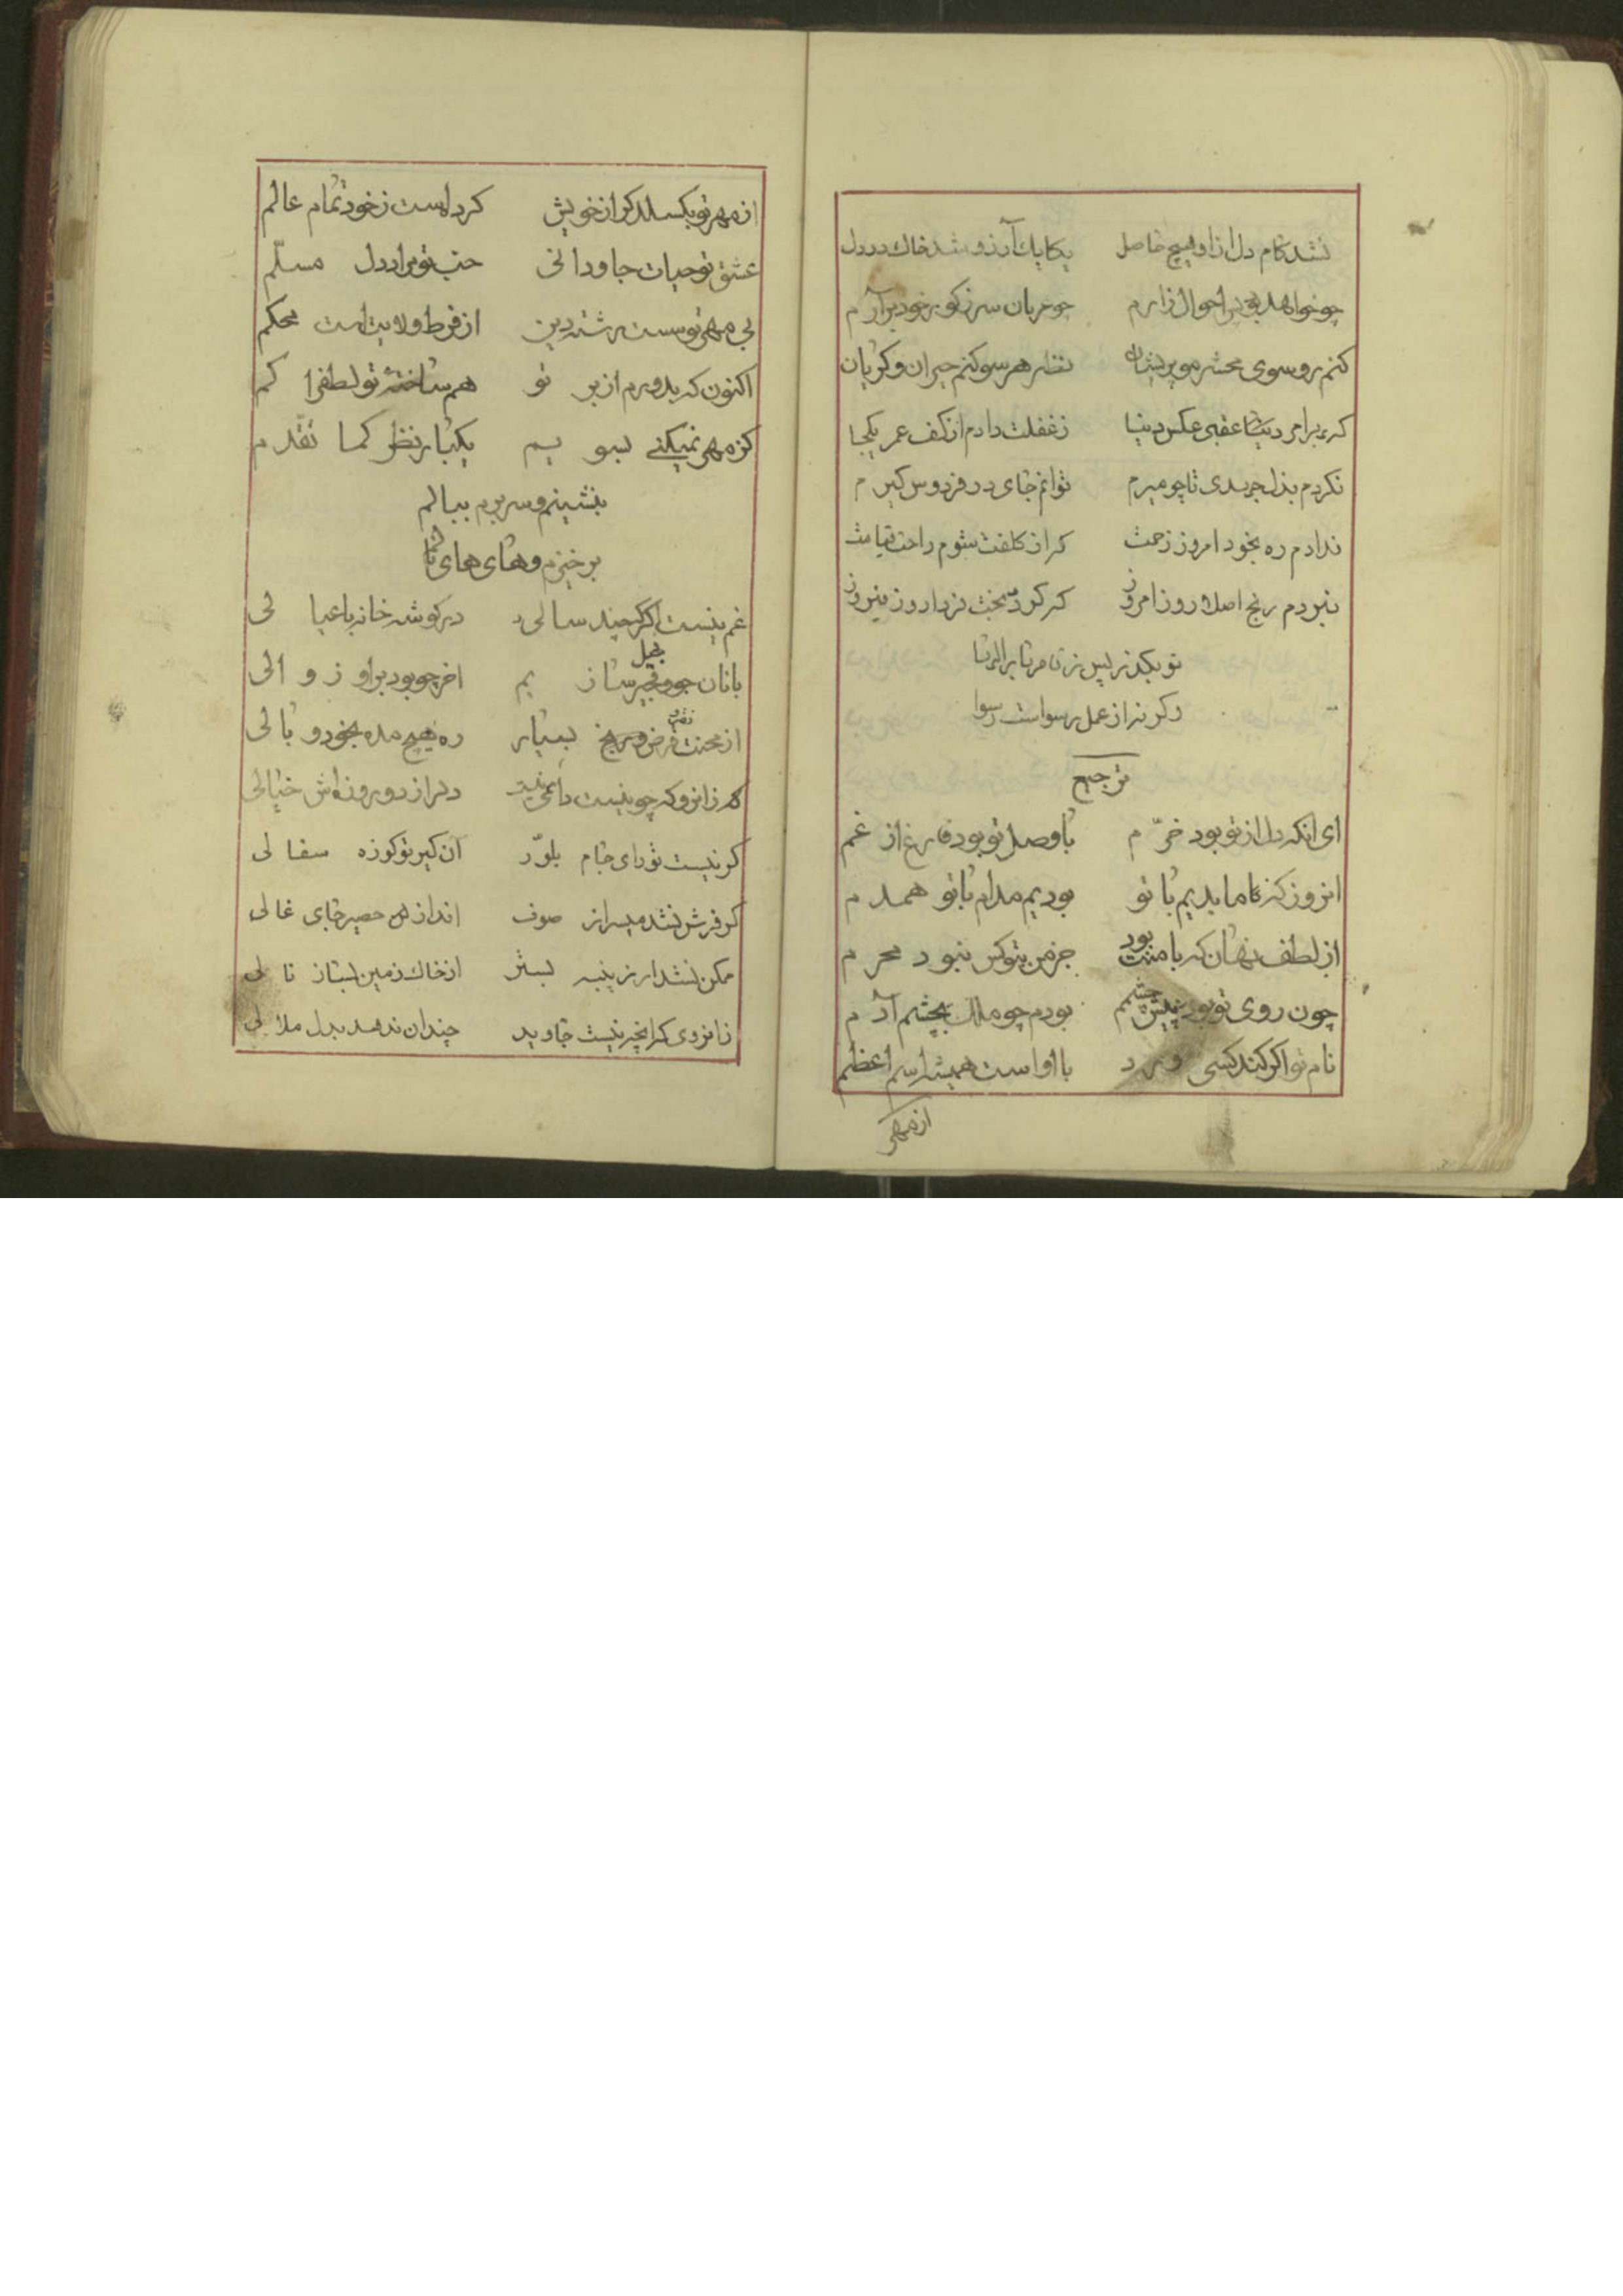 نشد کام دل از او هیچ حاصل یکایک آرزو شد خاک در دل
چو خواهد بود احوال زارم چو عریان سر ز کور خود برآرم
کنم رو سوی محشر مو پریشان نظر هر سو کنم حیران و کریان
که برامر دنیا عقبی عکس دنیا ز غفلت دادم از کف عمر یکجا
نکردم بذل جهدی تا چو میرم توانم جای در فردوس کیرم
ندادم ره بخود امروز زحمت کز از کلفت شوم راحت قیامت
نبردم رنج اصلا روز امروز که کردم بخت فردا روز فیروز
تو بکذر پس ز نامرتا برالرتا
وکرنه از عمل رسواست رسوا
ترجیع
ای انکه دل از تو بود خرّم با وصل تو بود فارغ از غم
انروز کز ما بدیم با تو بودیم مدام با تو همدم
از لطف نهان که با منت بود جز من بتو کس نبود محرم
چون روی تو بود پیش چشمم بودم چو ملک بچشم آدم
نام تو اکر کند کسی ورد با او است همیشه اسم اعظم
از مهر
از مهر تو بکسلد کر از خویش کرد است ز خود تمام عالم
عشق تو حیات جاودانی حب تو مراد دل مسلّم
بی مهر تو سست رشته دین از فرط ولایت است محکم
اکنون که بدورم از بر تو هم ساخته تو لطف را کم
کز مهر نمیکنی بسویم یکبار نظر کما تقدم
بنشینم و سر برم ببالم
برخیزم و های های نالم
غم نیست اکر چند سالی در کوشه خانه با عیالی
با نان جو و پنیر سازیم اخر چو بود براو زوالی
از محنت قرض و رنج بسیار ره هیچ مده بخود وبالی
زانرو که چو نیست دائمی دراز دو روزه‌اش خیالی
کر نیست تو رای جام بلوّر آن کیر تو کوزه سفالی
کر فرش نشد میسر از صوف انداز حصیر جای غالی
ممکن نشد ار ز پنبه بستر از خاک زمین بساز نالی
زانروی کرانچه نیست جاوید چندان ندهد بدل ملالی